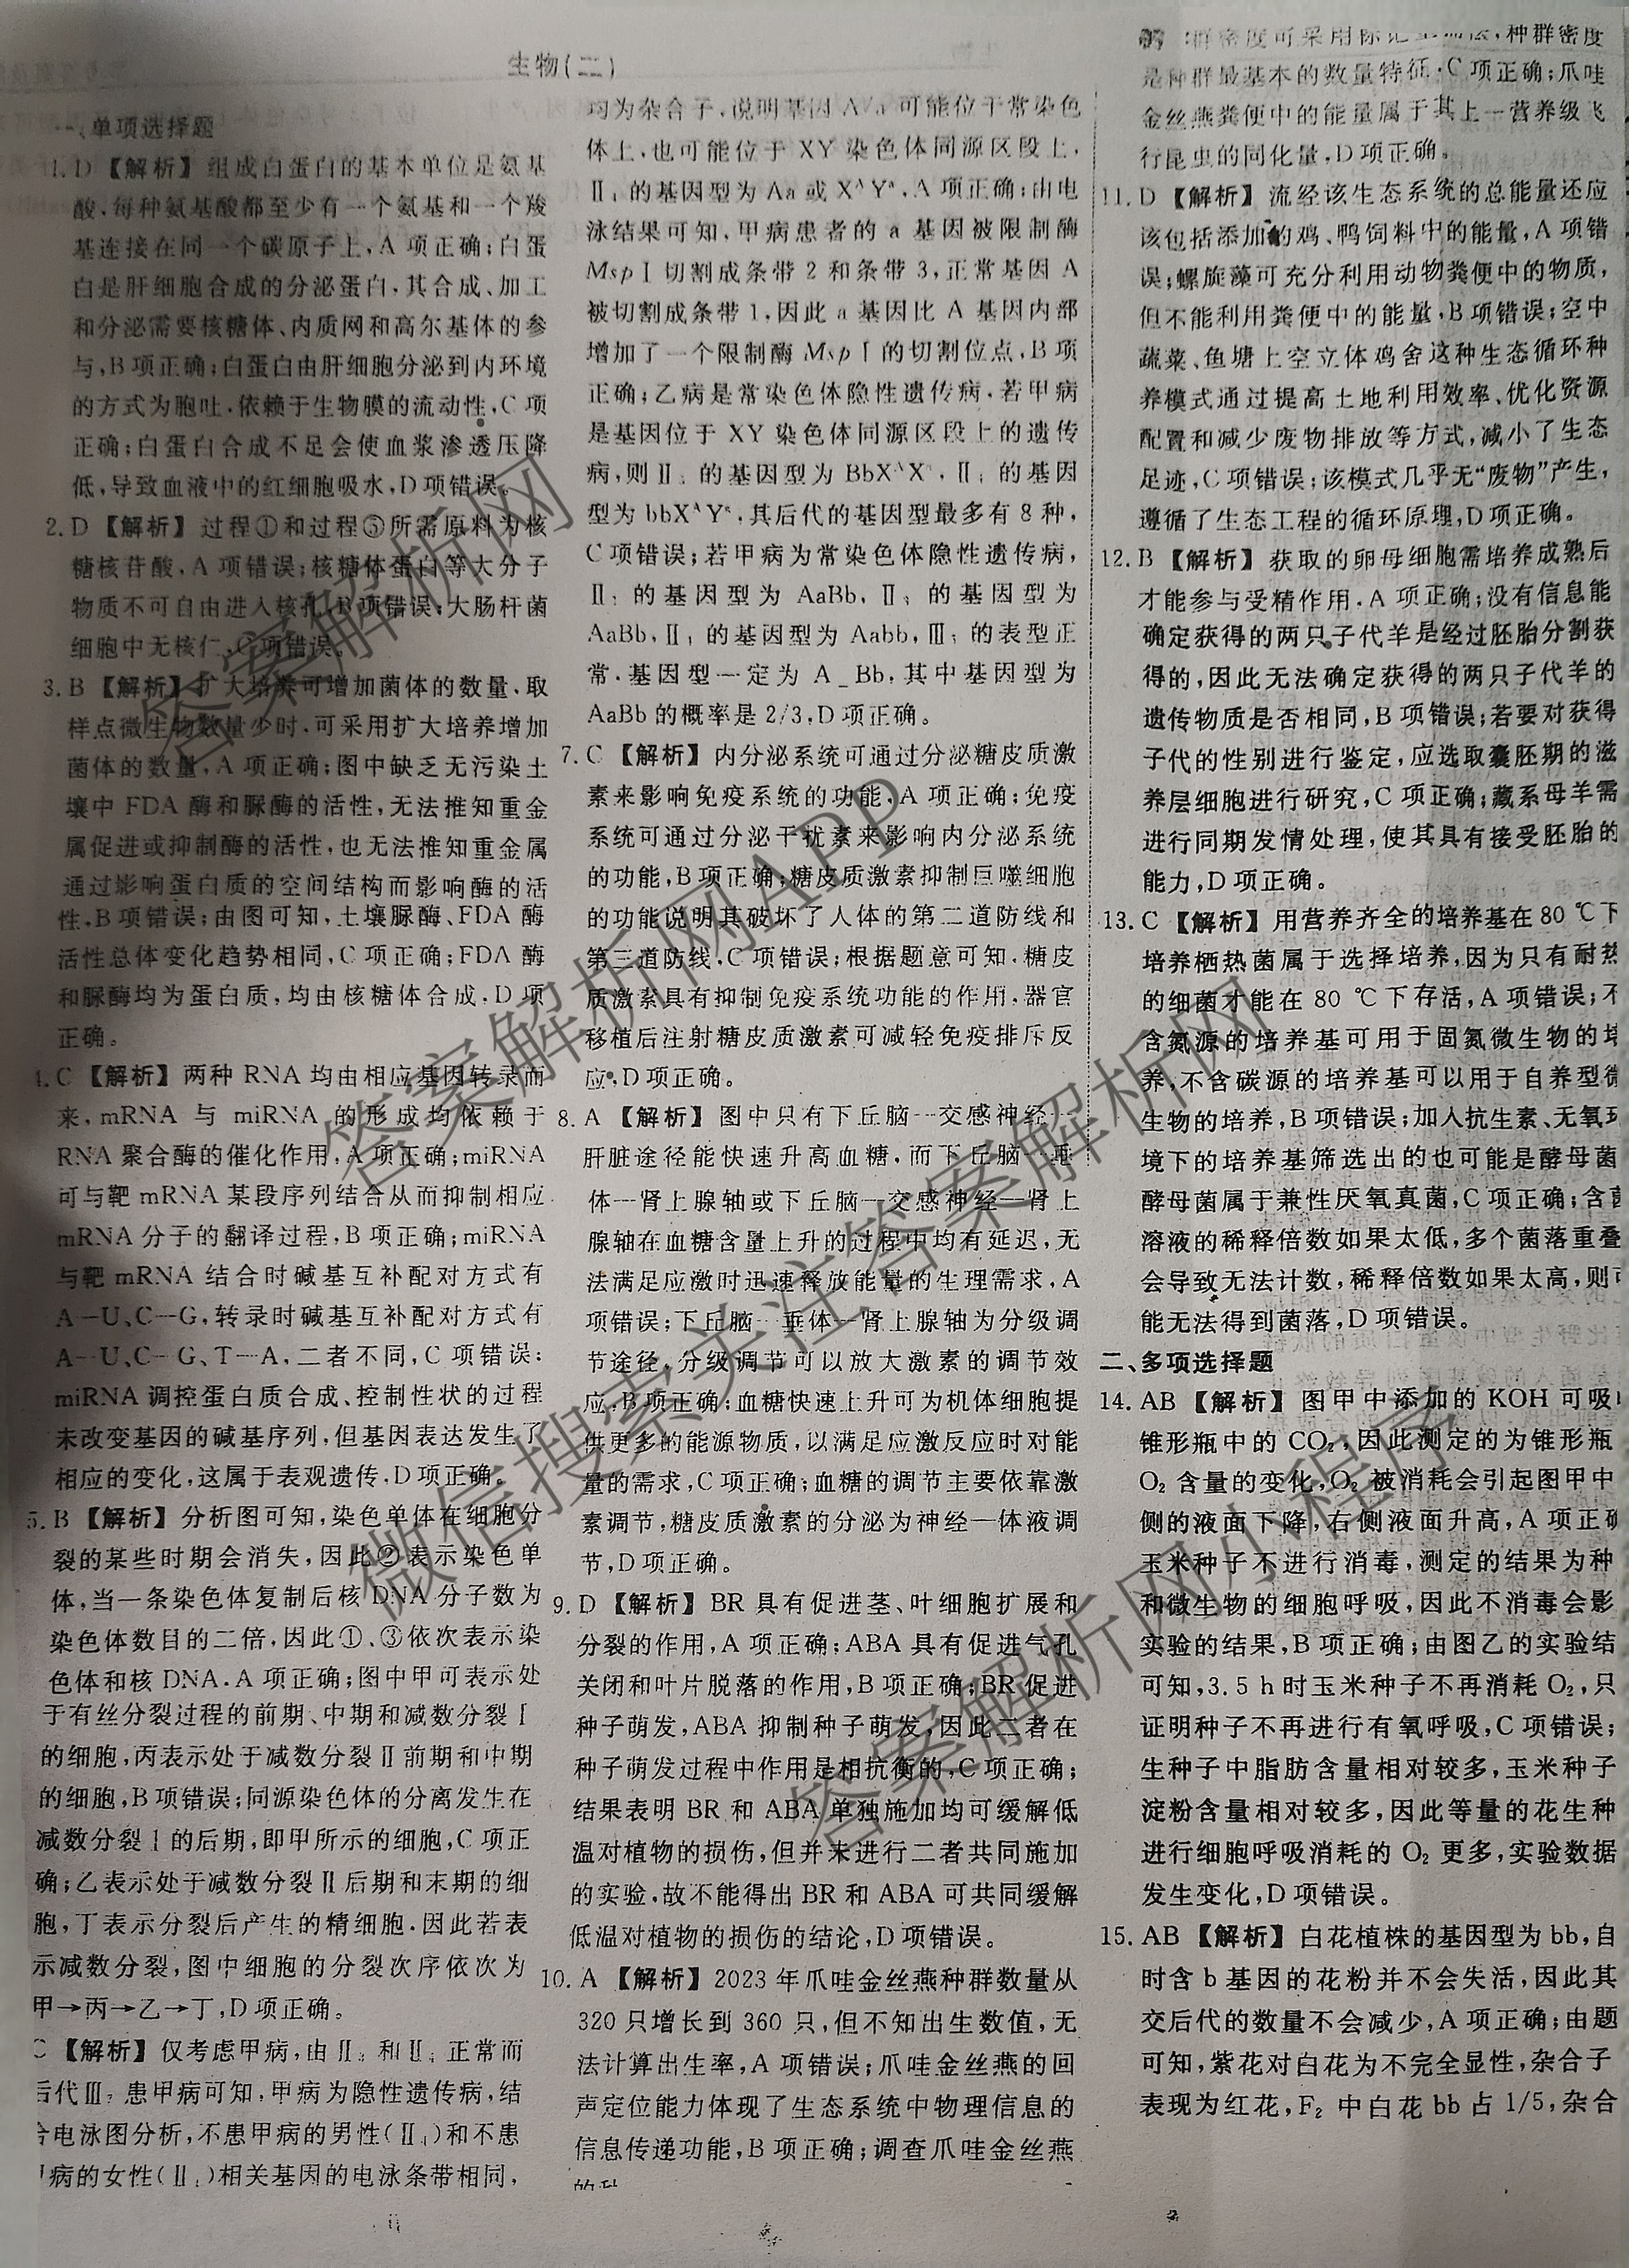 生物(二)
一、单项选择题
1. D 【解析】 组成白蛋白的基本单位是氨基
酸,每种氨基酸都至少有一个氨基和一个羧
基连接在同一个碳原子上,A 项正确;白蛋
白是肝细胞合成的分泌蛋白,其合成、加工
和分泌需要核糖体、内质网和高尔基体的参
与,B项正确;白蛋白由肝细胞分泌到内环境
的方式为胞吐,依赖于生物膜的流动性,C 项
正确;白蛋白合成不足会使血浆渗透压降
低,导致血液中的红细胞吸水,D项错误。
2. D 【解析】 过程①和过程⑤所需原料为核
糖核苷酸,A 项错误;核糖体蛋白等大分子
物质不可自由进入核孔,B项错误;大肠杆菌
细胞中无核仁,C项错误。
3. B 【解析】 扩大培养可增加菌体的数量,取
样点微生物数量少时,可采用扩大培养增加
菌体的数量,A 项正确;图中缺乏无污染土
壤中 FDA 酶和脲酶的活性,无法推知重金
属促进或抑制酶的活性,也无法推知重金属
通过影响蛋白质的空间结构而影响酶的活
性,B项错误;由图可知,土壤脲酶、FDA 酶
活性总体变化趋势相同,C 项正确;FDA 酶
和脲酶均为蛋白质,均由核糖体合成,D 项
正确。
4. C 【解析】 两种 RNA 均由相应基因转录而
来,mRNA 与 miRNA 的形成均依赖于
RNA 聚合酶的催化作用,A 项正确;miRNA
可与靶 mRNA 某段序列结合从而抑制相应
mRNA 分子的翻译过程,B 项正确;miRNA
与靶 mRNA 结合时碱基互补配对方式有
A—U、C—G,转录时碱基互补配对方式有
A—U、C—G、T—A,二者不同,C 项错误;
miRNA 调控蛋白质合成、控制性状的过程
未改变基因的碱基序列,但基因表达发生了
相应的变化,这属于表观遗传,D项正确。
5. B 【解析】 分析图可知,染色单体在细胞分
裂的某些时期会消失,因此②表示染色单
体,当一条染色体复制后核 DNA 分子数为
染色体数目的二倍,因此①、③依次表示染
色体和核 DNA,A 项正确;图中甲可表示处
于有丝分裂过程的前期、中期和减数分裂Ⅰ
的细胞,丙表示处于减数分裂Ⅱ前期和中期
的细胞,B项错误;同源染色体的分离发生在
减数分裂Ⅰ的后期,即甲所示的细胞,C 项正
确;乙表示处于减数分裂Ⅱ后期和末期的细
胞,丁表示分裂后产生的精细胞,因此若表
示减数分裂,图中细胞的分裂次序依次为
甲→丙→乙→丁,D 项正确。
C 【解析】 仅考虑甲病,由Ⅱ 和Ⅱ 正常而
后代Ⅲ 患甲病可知,甲病为隐性遗传病,结
合电泳图分析,不患甲病的男性(Ⅱ )和不患
甲病的女性(Ⅱ )相关基因的电泳条带相同,
均为杂合子,说明基因 A/a 可能位于常染色
体上,也可能位于 XY 染色体同源区段上,
Ⅱ 的基因型为 Aa 或 XᴬYᵃ,A 项正确;由电
泳结果可知,甲病患者的 a 基因被限制酶
MspⅠ切割成条带 2 和条带 3,正常基因 A
被切割成条带 1,因此 a 基因比 A 基因内部
增加了一个限制酶 MspⅠ的切割位点,B 项
正确;乙病是常染色体隐性遗传病,若甲病
是基因位于 XY 染色体同源区段上的遗传
病,则Ⅱ 的基因型为 BbXᴬXᵃ,Ⅱ 的基因
型为 bbXᴬYᵃ,其后代的基因型最多有 8 种,
C 项错误;若甲病为常染色体隐性遗传病,
Ⅱ 的基因型为 AaBb,Ⅱ 的基因型为
AaBb,Ⅱ 的基因型为 Aabb,Ⅲ 的表型正
常,基因型一定为 A_Bb,其中基因型为
AaBb 的概率是 2/3,D 项正确。
7. C 【解析】 内分泌系统可通过分泌糖皮质激
素来影响免疫系统的功能,A 项正确;免疫
系统可通过分泌干扰素来影响内分泌系统
的功能,B项正确;糖皮质激素抑制巨噬细胞
的功能说明其破坏了人体的第二道防线和
第三道防线,C 项错误;根据题意可知,糖皮
质激素具有抑制免疫系统功能的作用,器官
移植后注射糖皮质激素可减轻免疫排斥反
应,D项正确。
8. A 【解析】 图中只有下丘脑—交感神经—
肝脏途径能快速升高血糖,而下丘脑—垂
体—肾上腺轴或下丘脑—交感神经—肾上
腺轴在血糖含量上升的过程中均有延迟,无
法满足应激时迅速释放能量的生理需求,A
项错误;下丘脑—垂体—肾上腺轴为分级调
节途径,分级调节可以放大激素的调节效
应,B项正确;血糖快速上升可为机体细胞提
供更多的能源物质,以满足应激反应时对能
量的需求,C 项正确;血糖的调节主要依靠激
素调节,糖皮质激素的分泌为神经—体液调
节,D 项正确。
9. D 【解析】 BR 具有促进茎、叶细胞扩展和
分裂的作用,A 项正确;ABA 具有促进气孔
关闭和叶片脱落的作用,B 项正确;BR 促进
种子萌发,ABA 抑制种子萌发,因此二者在
种子萌发过程中作用是相抗衡的,C 项正确;
结果表明 BR 和 ABA 单独施加均可缓解低
温对植物的损伤,但并未进行二者共同施加
的实验,故不能得出 BR 和 ABA 可共同缓解
低温对植物的损伤的结论,D 项错误。
10. A 【解析】 2023 年爪哇金丝燕种群数量从
320 只增长到 360 只,但不知出生数值,无
法计算出生率,A 项错误;爪哇金丝燕的回
声定位能力体现了生态系统中物理信息的
信息传递功能,B 项正确;调查爪哇金丝燕
群密度可采用标记重捕法,种群密度
是种群最基本的数量特征,C 项正确;爪哇
金丝燕粪便中的能量属于其上一营养级飞
行昆虫的同化量,D 项正确。
11. D 【解析】 流经该生态系统的总能量还应
该包括添加的鸡、鸭饲料中的能量,A 项错
误;螺旋藻可充分利用动物粪便中的物质,
但不能利用粪便中的能量,B 项错误;空中
蔬菜、鱼塘上空立体鸡舍这种生态循环种
养模式通过提高土地利用效率、优化资源
配置和减少废物排放等方式,减小了生态
足迹,C 项错误;该模式几乎无“废物”产生,
遵循了生态工程的循环原理,D 项正确。
12. B 【解析】 获取的卵母细胞需培养成熟后
才能参与受精作用,A 项正确;没有信息能
确定获得的两只子代羊是经过胚胎分割获
得的,因此无法确定获得的两只子代羊的
遗传物质是否相同,B 项错误;若要对获得
子代的性别进行鉴定,应选取囊胚期的滋
养层细胞进行研究,C 项正确;藏系母羊需
进行同期发情处理,使其具有接受胚胎的
能力,D 项正确。
13. C 【解析】 用营养齐全的培养基在 80 ℃下
培养栖热菌属于选择培养,因为只有耐热
的细菌才能在 80 ℃下存活,A 项错误;不
含氮源的培养基可用于固氮微生物的培
养,不含碳源的培养基可以用于自养型微
生物的培养,B 项错误;加入抗生素、无氧环
境下的培养基筛选出的也可能是酵母菌
酵母菌属于兼性厌氧真菌,C 项正确;含菌
溶液的稀释倍数如果太低,多个菌落重叠
会导致无法计数,稀释倍数如果太高,则可
能无法得到菌落,D 项错误。
二、多项选择题
14. AB 【解析】 图甲中添加的 KOH 可吸收
锥形瓶中的 CO₂,因此测定的为锥形瓶
O₂ 含量的变化,O₂ 被消耗会引起图甲中
侧的液面下降,右侧液面升高,A 项正确
玉米种子不进行消毒,测定的结果为种
和微生物的细胞呼吸,因此不消毒会影
实验的结果,B 项正确;由图乙的实验结
可知,3.5 h 时玉米种子不再消耗 O₂,只
证明种子不再进行有氧呼吸,C 项错误;
生种子中脂肪含量相对较多,玉米种子
淀粉含量相对较多,因此等量的花生种
进行细胞呼吸消耗的 O₂ 更多,实验数据
发生变化,D 项错误。
15. AB 【解析】 白花植株的基因型为 bb,自
时含 b 基因的花粉并不会失活,因此其
交后代的数量不会减少,A 项正确;由题
可知,紫花对白花为不完全显性,杂合子
表现为红花,F₂ 中白花 bb 占 1/5,杂合
答案解析网
答案解析网APP
微信搜索关注答案解析网
答案解析网小程序